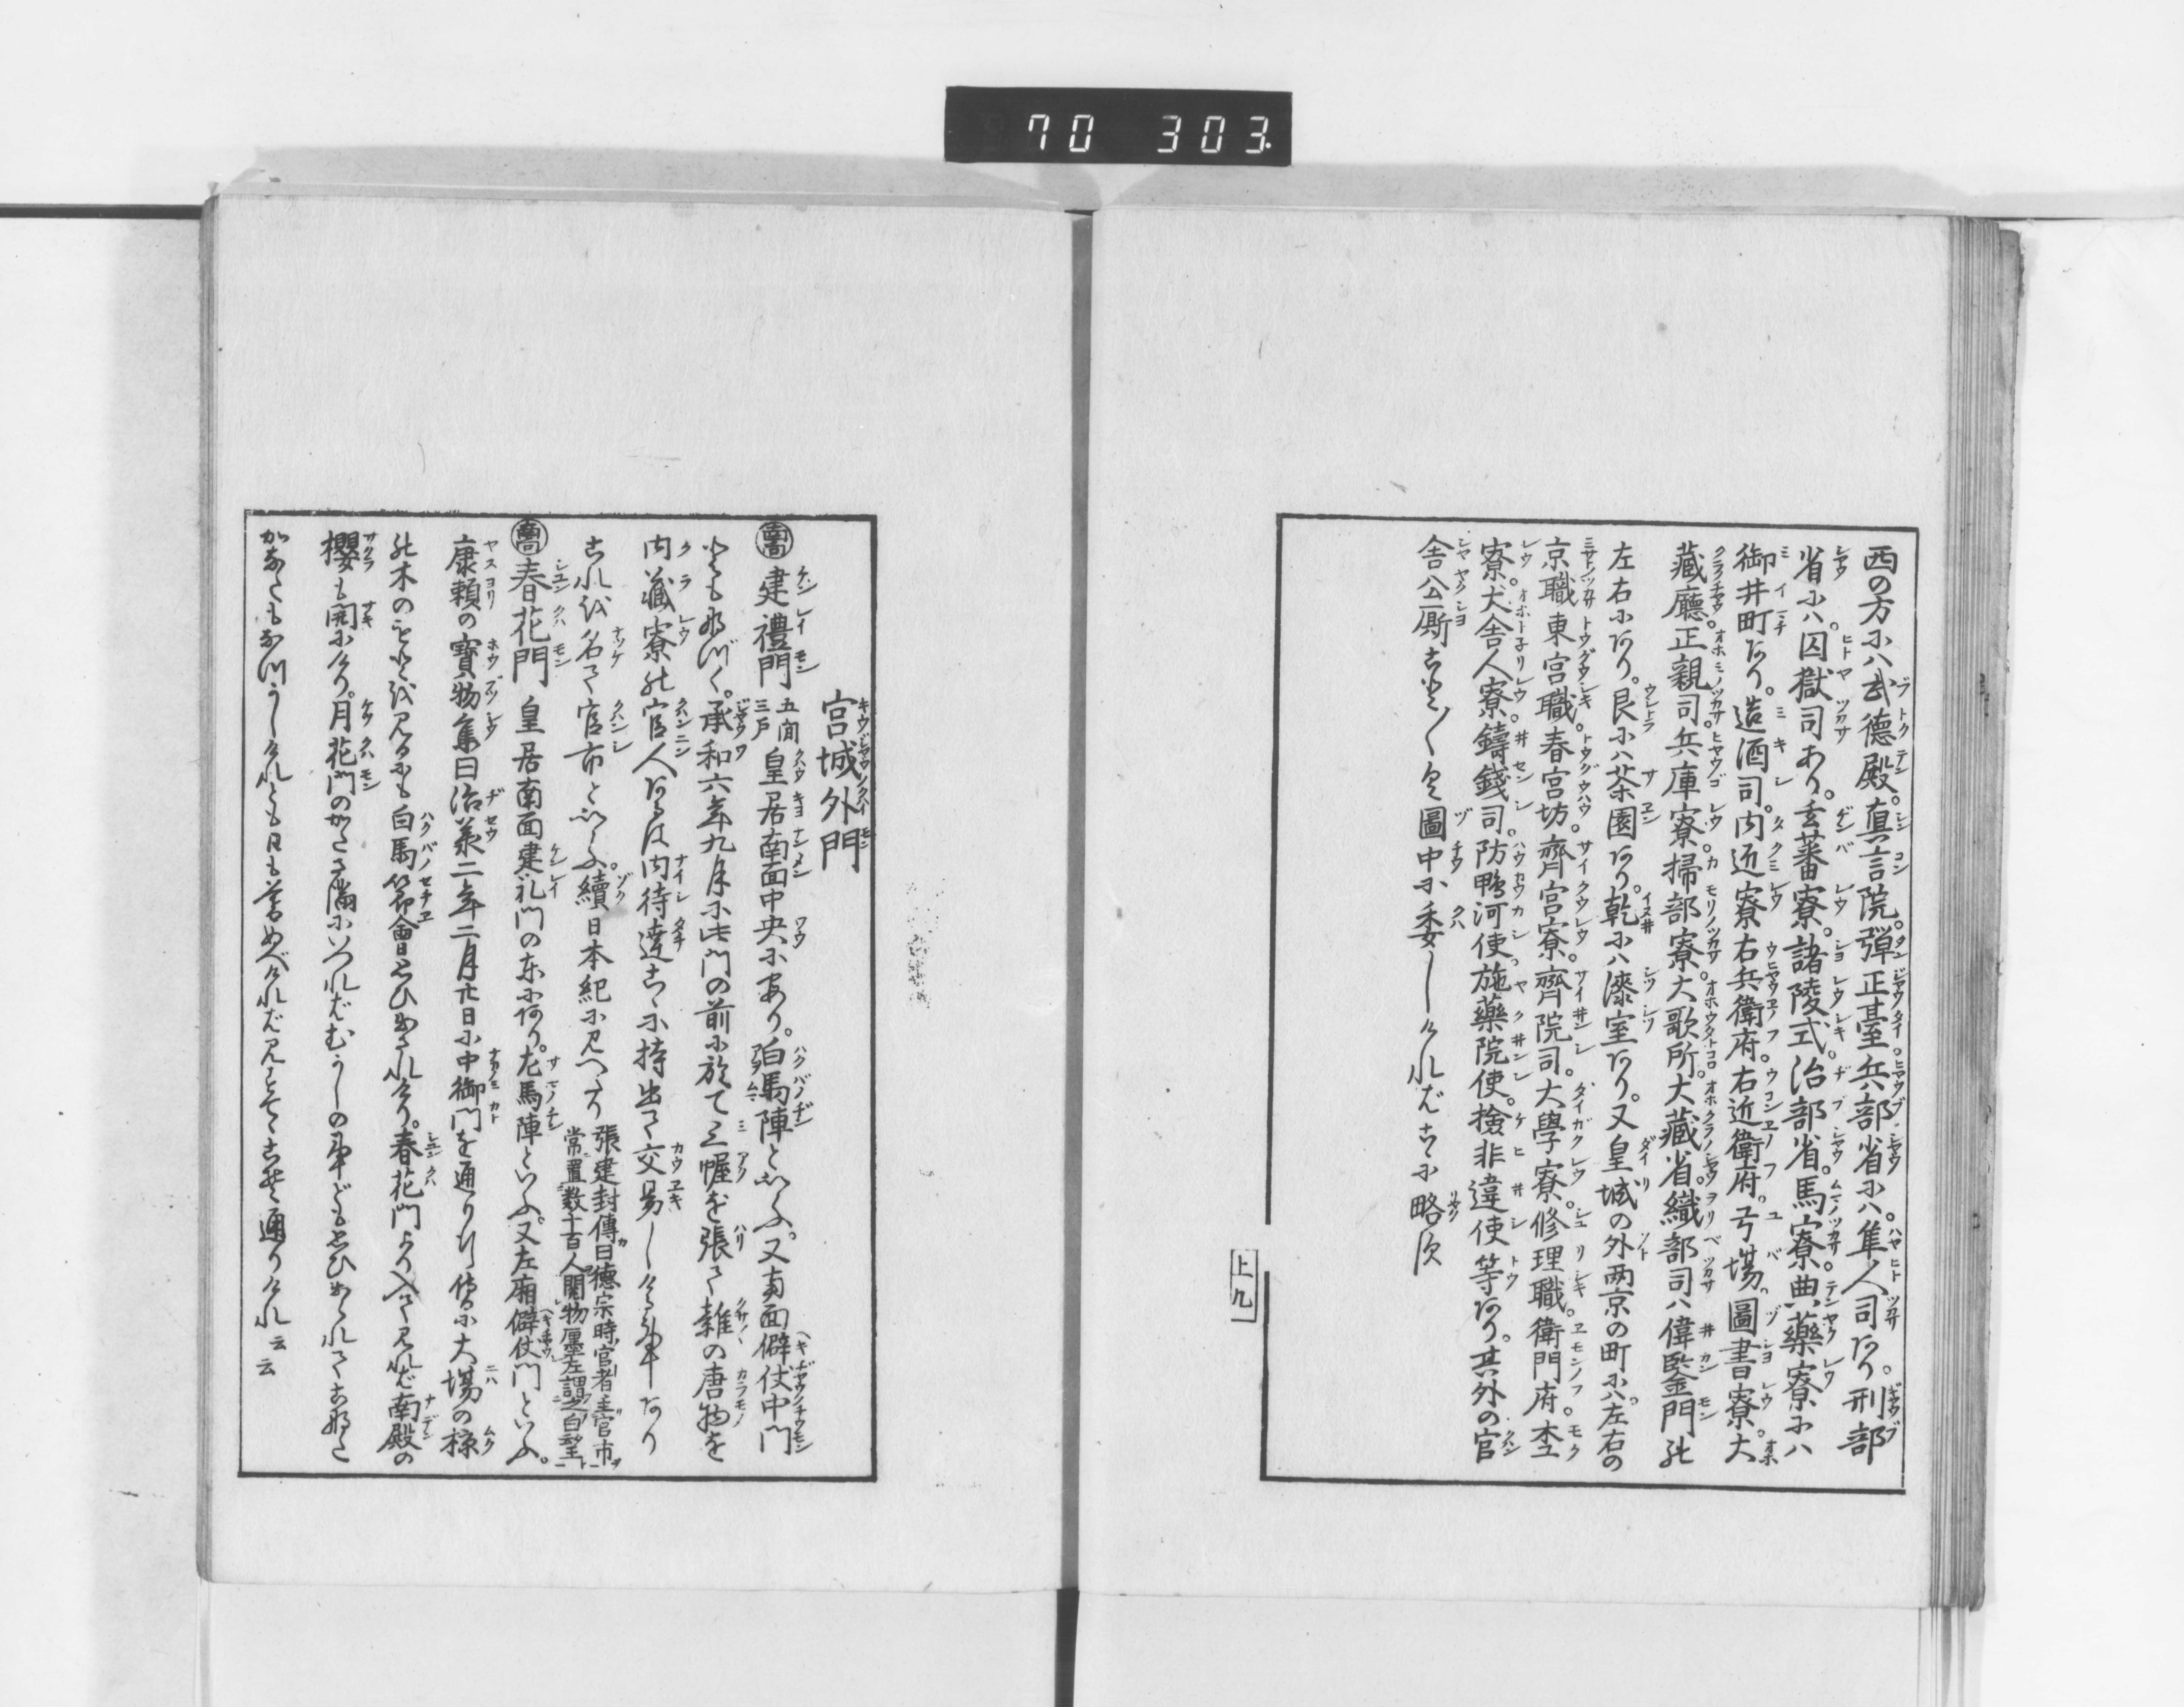 70 303.
西の方にハ武德殿。真言院。彈正臺。兵部省にハ。隼人司あり。刑部
省にハ。囚獄司あり。玄蕃寮。諸陵式。治部省。馬寮。典藥寮にハ
御井町あり。造酒司。内近寮。右兵衛府。右近衛府。弓場。圖書寮。大
藏廳。正親司。兵庫寮。掃部寮。大歌所。大藏省。織部司ハ偉鑒門の
左右にあり。艮にハ茶園あり。乾にハ漆室あり。又皇城の外两京の町にハ。左右の
京職。東宮職。春宮坊。齊宮寮。齊院司。大學寮。修理職。衛門府。木工
寮。大舎人寮。鑄錢司。防鴨河使。施藥院使。撿非違使等あり。其外の官
舎公厮こと〲く圖中に委しけれバこゝに略す
上九
宮城外門
建禮門 五間三戸 皇居南面中央にあり。白馬陣といふ。又南面僻仗中門
とも名づく。承和六年九月に此門の前に於て三幄を張て雑の唐物を
内藏寮の官人あるは内侍達こゝに持出て交易しける事あり
これを名て官市といふ。續日本紀に見へたり 張建封傳曰德宗時官者主宮市
常置数十百人閲物廛左謂之白望
春花門 皇居南面建礼門の東にあり。左馬陣といふ。又左廂僻仗門といふ。
康頼の寶物集曰治羕二年二月廿日に中御門を通り行侍に大場の椋
の木のもとを見るにも白馬節會思ひ出されけり。春花門より入て見れバ南殿の
櫻も開にけり。月花門のかたさ滿にいつれバむかしの事ども思ひ出られてこなた
かなたもなつかしけれとも日も暮ぬべけれバ見すてゝこそ通りけれ云云